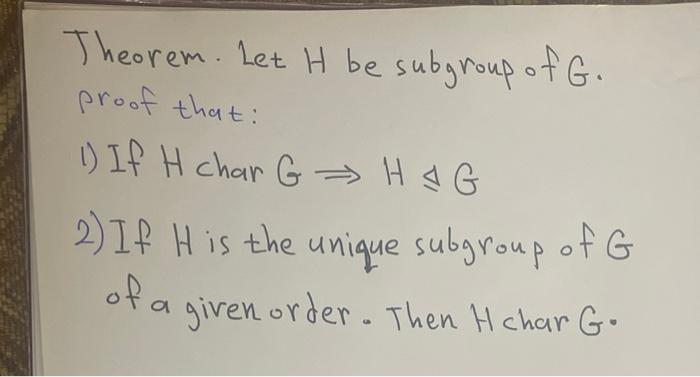 Theorem. Let H be subgroup of G.
proof that:
1) If H char G ⇒ H ⊴ G
2) If H is the unique subgroup of G
of a given order. Then H char G.